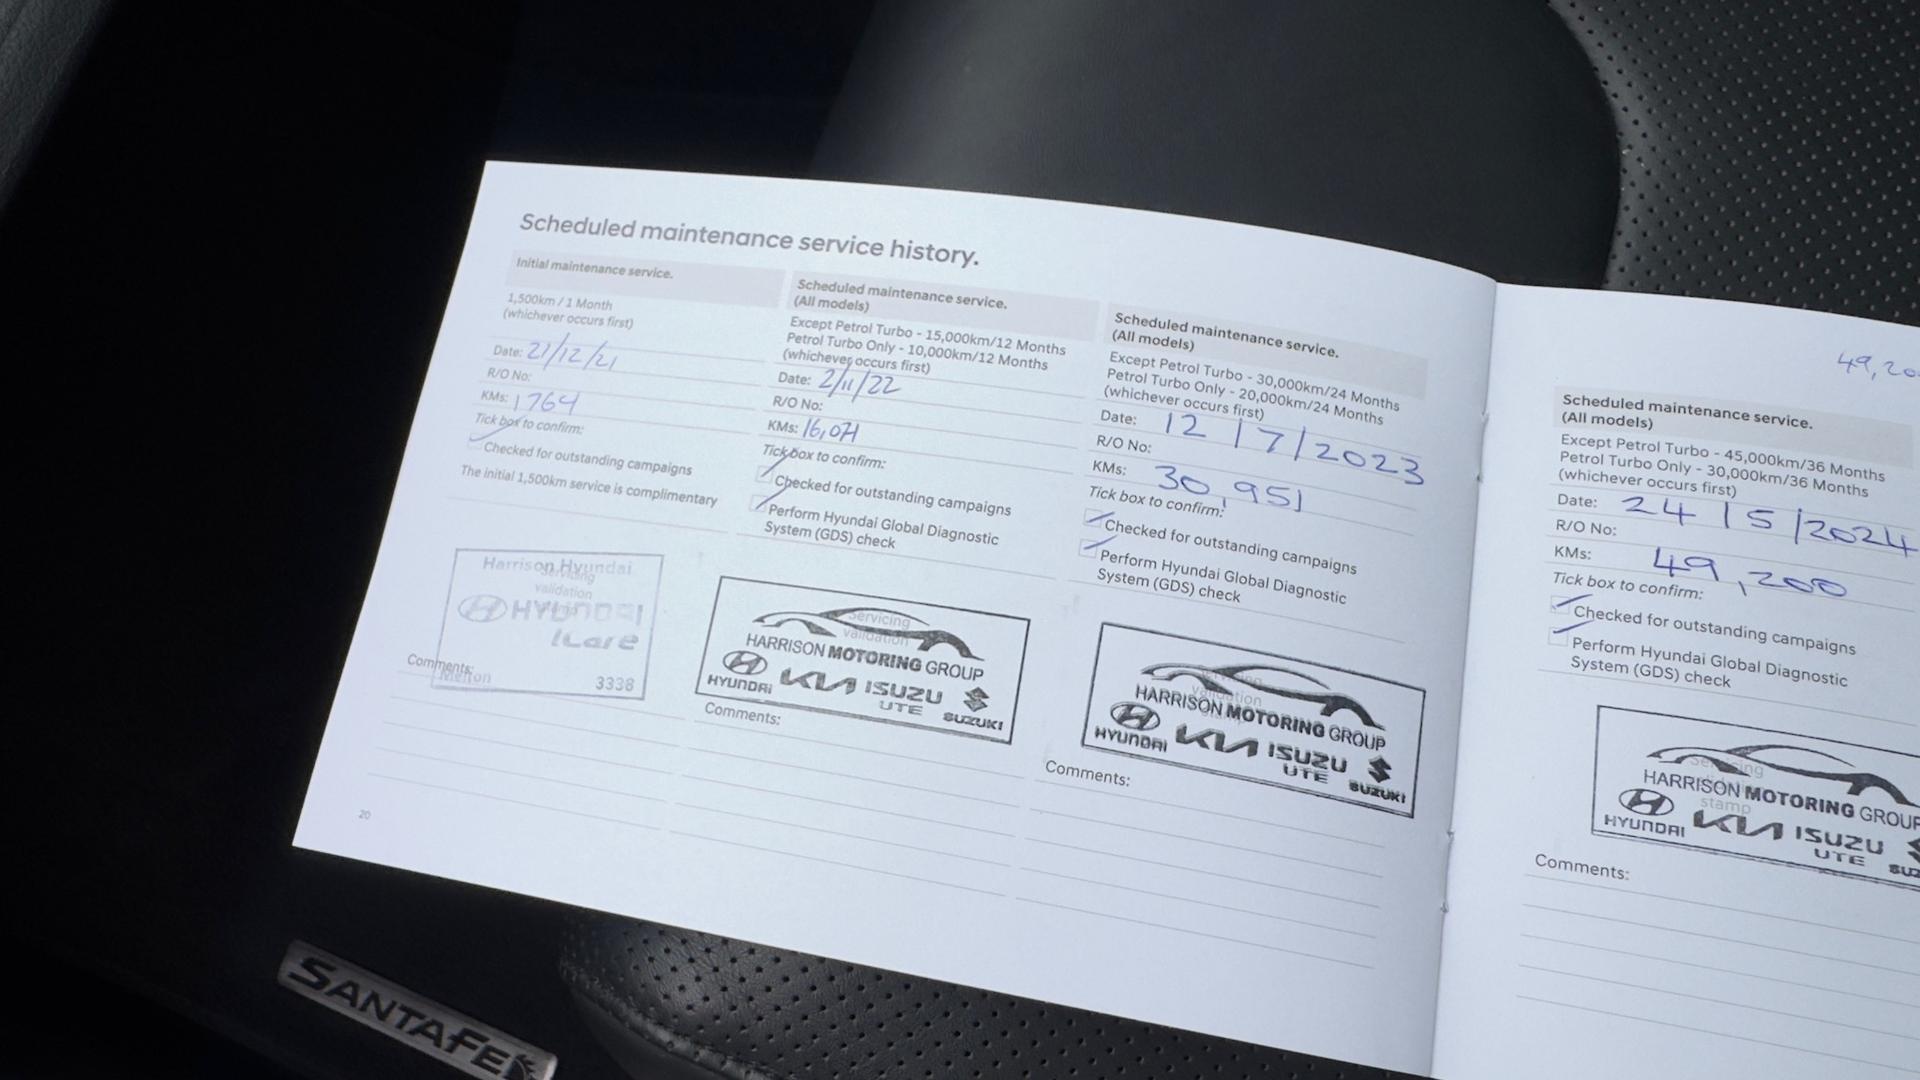 Scheduled maintenance service history.
Initial maintenance service.
1,500km / 1 Month
(whichever occurs first)
Date: 21/12/21
R/O No:
KMs: 1764
Tick box to confirm:
Checked for outstanding campaigns
The initial 1,500km service is complimentary
Harrison Hyundai
Servicing
validation
HYUNDAI
iCare
Melton 3338
Comments:
20
Scheduled maintenance service.
(All models)
Except Petrol Turbo - 15,000km/12 Months
Petrol Turbo Only - 10,000km/12 Months
(whichever occurs first)
Date: 2/11/22
R/O No:
KMs: 16,071
Tick box to confirm:
Checked for outstanding campaigns
Perform Hyundai Global Diagnostic
System (GDS) check
Servicing
validation
HARRISON MOTORING GROUP
HYUNDAI KIA ISUZU
UTE SUZUKI
Comments:
Scheduled maintenance service.
(All models)
Except Petrol Turbo - 30,000km/24 Months
Petrol Turbo Only - 20,000km/24 Months
(whichever occurs first)
Date: 12/7/2023
R/O No:
KMs: 30,951
Tick box to confirm:
Checked for outstanding campaigns
Perform Hyundai Global Diagnostic
System (GDS) check
Servicing
validation
HARRISON MOTORING GROUP
HYUNDAI KIA ISUZU
UTE SUZUKI
Comments:
49,20
Scheduled maintenance service.
(All models)
Except Petrol Turbo - 45,000km/36 Months
Petrol Turbo Only - 30,000km/36 Months
(whichever occurs first)
Date: 24/5/2024
R/O No:
KMs: 49,200
Tick box to confirm:
Checked for outstanding campaigns
Perform Hyundai Global Diagnostic
System (GDS) check
Servicing
validation
stamp
HARRISON MOTORING GROUP
HYUNDAI KIA ISUZU
UTE SUZ
Comments:
SANTAFE